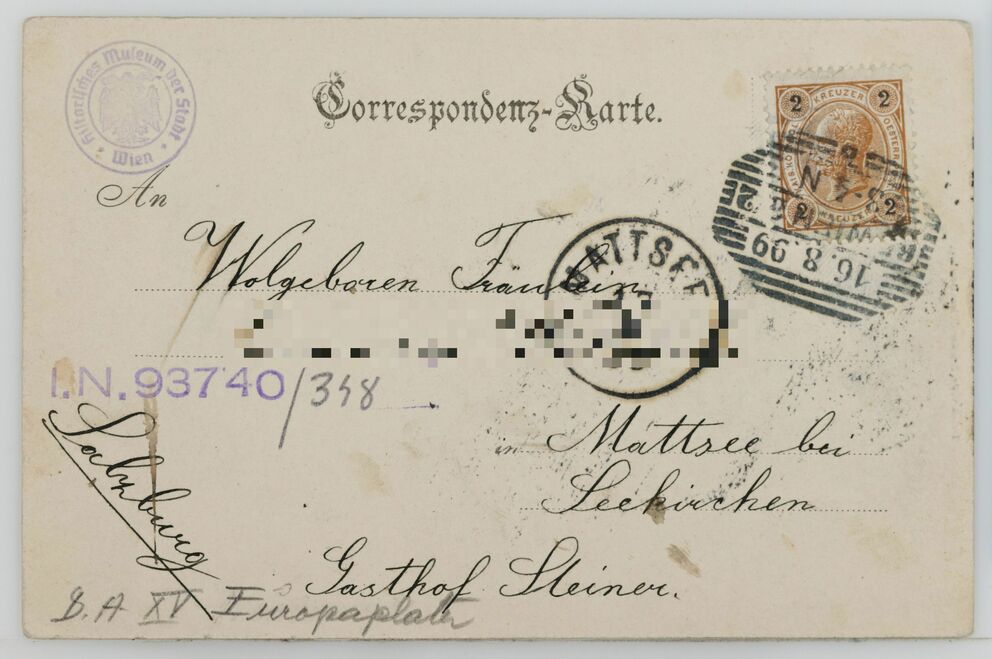 Historisches Museum der Stadt Wien
Correspondenz-Karte.
2 KREUZER 2
2 KREUZER 2
16.8.99
An
MATTSEE
Wolgeboren Fräulein
I.N. 93740/348
in Mattsee bei
Seekirchen
Salzburg
Gasthof Steiner.
B.A XV Europaplatz